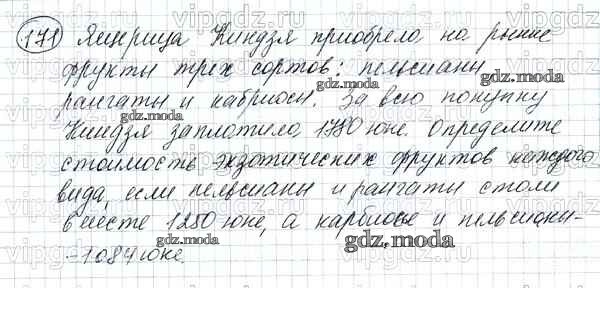 171 Ящерица Киндзя приобрела на рынке
фрукты трех сортов: пельсианы
gdz.moda
рангаты и кабриоси. За всю покупку
Киндзя заплатила 1730 юне. Определите
стоимость экзотических фруктов каждого
вида, если пельсианы и рангаты столи
вместе 1250 юне, а карбиосы и пельсианы-
-1084 юне.
gdz.moda
gdz.moda
gdz.moda